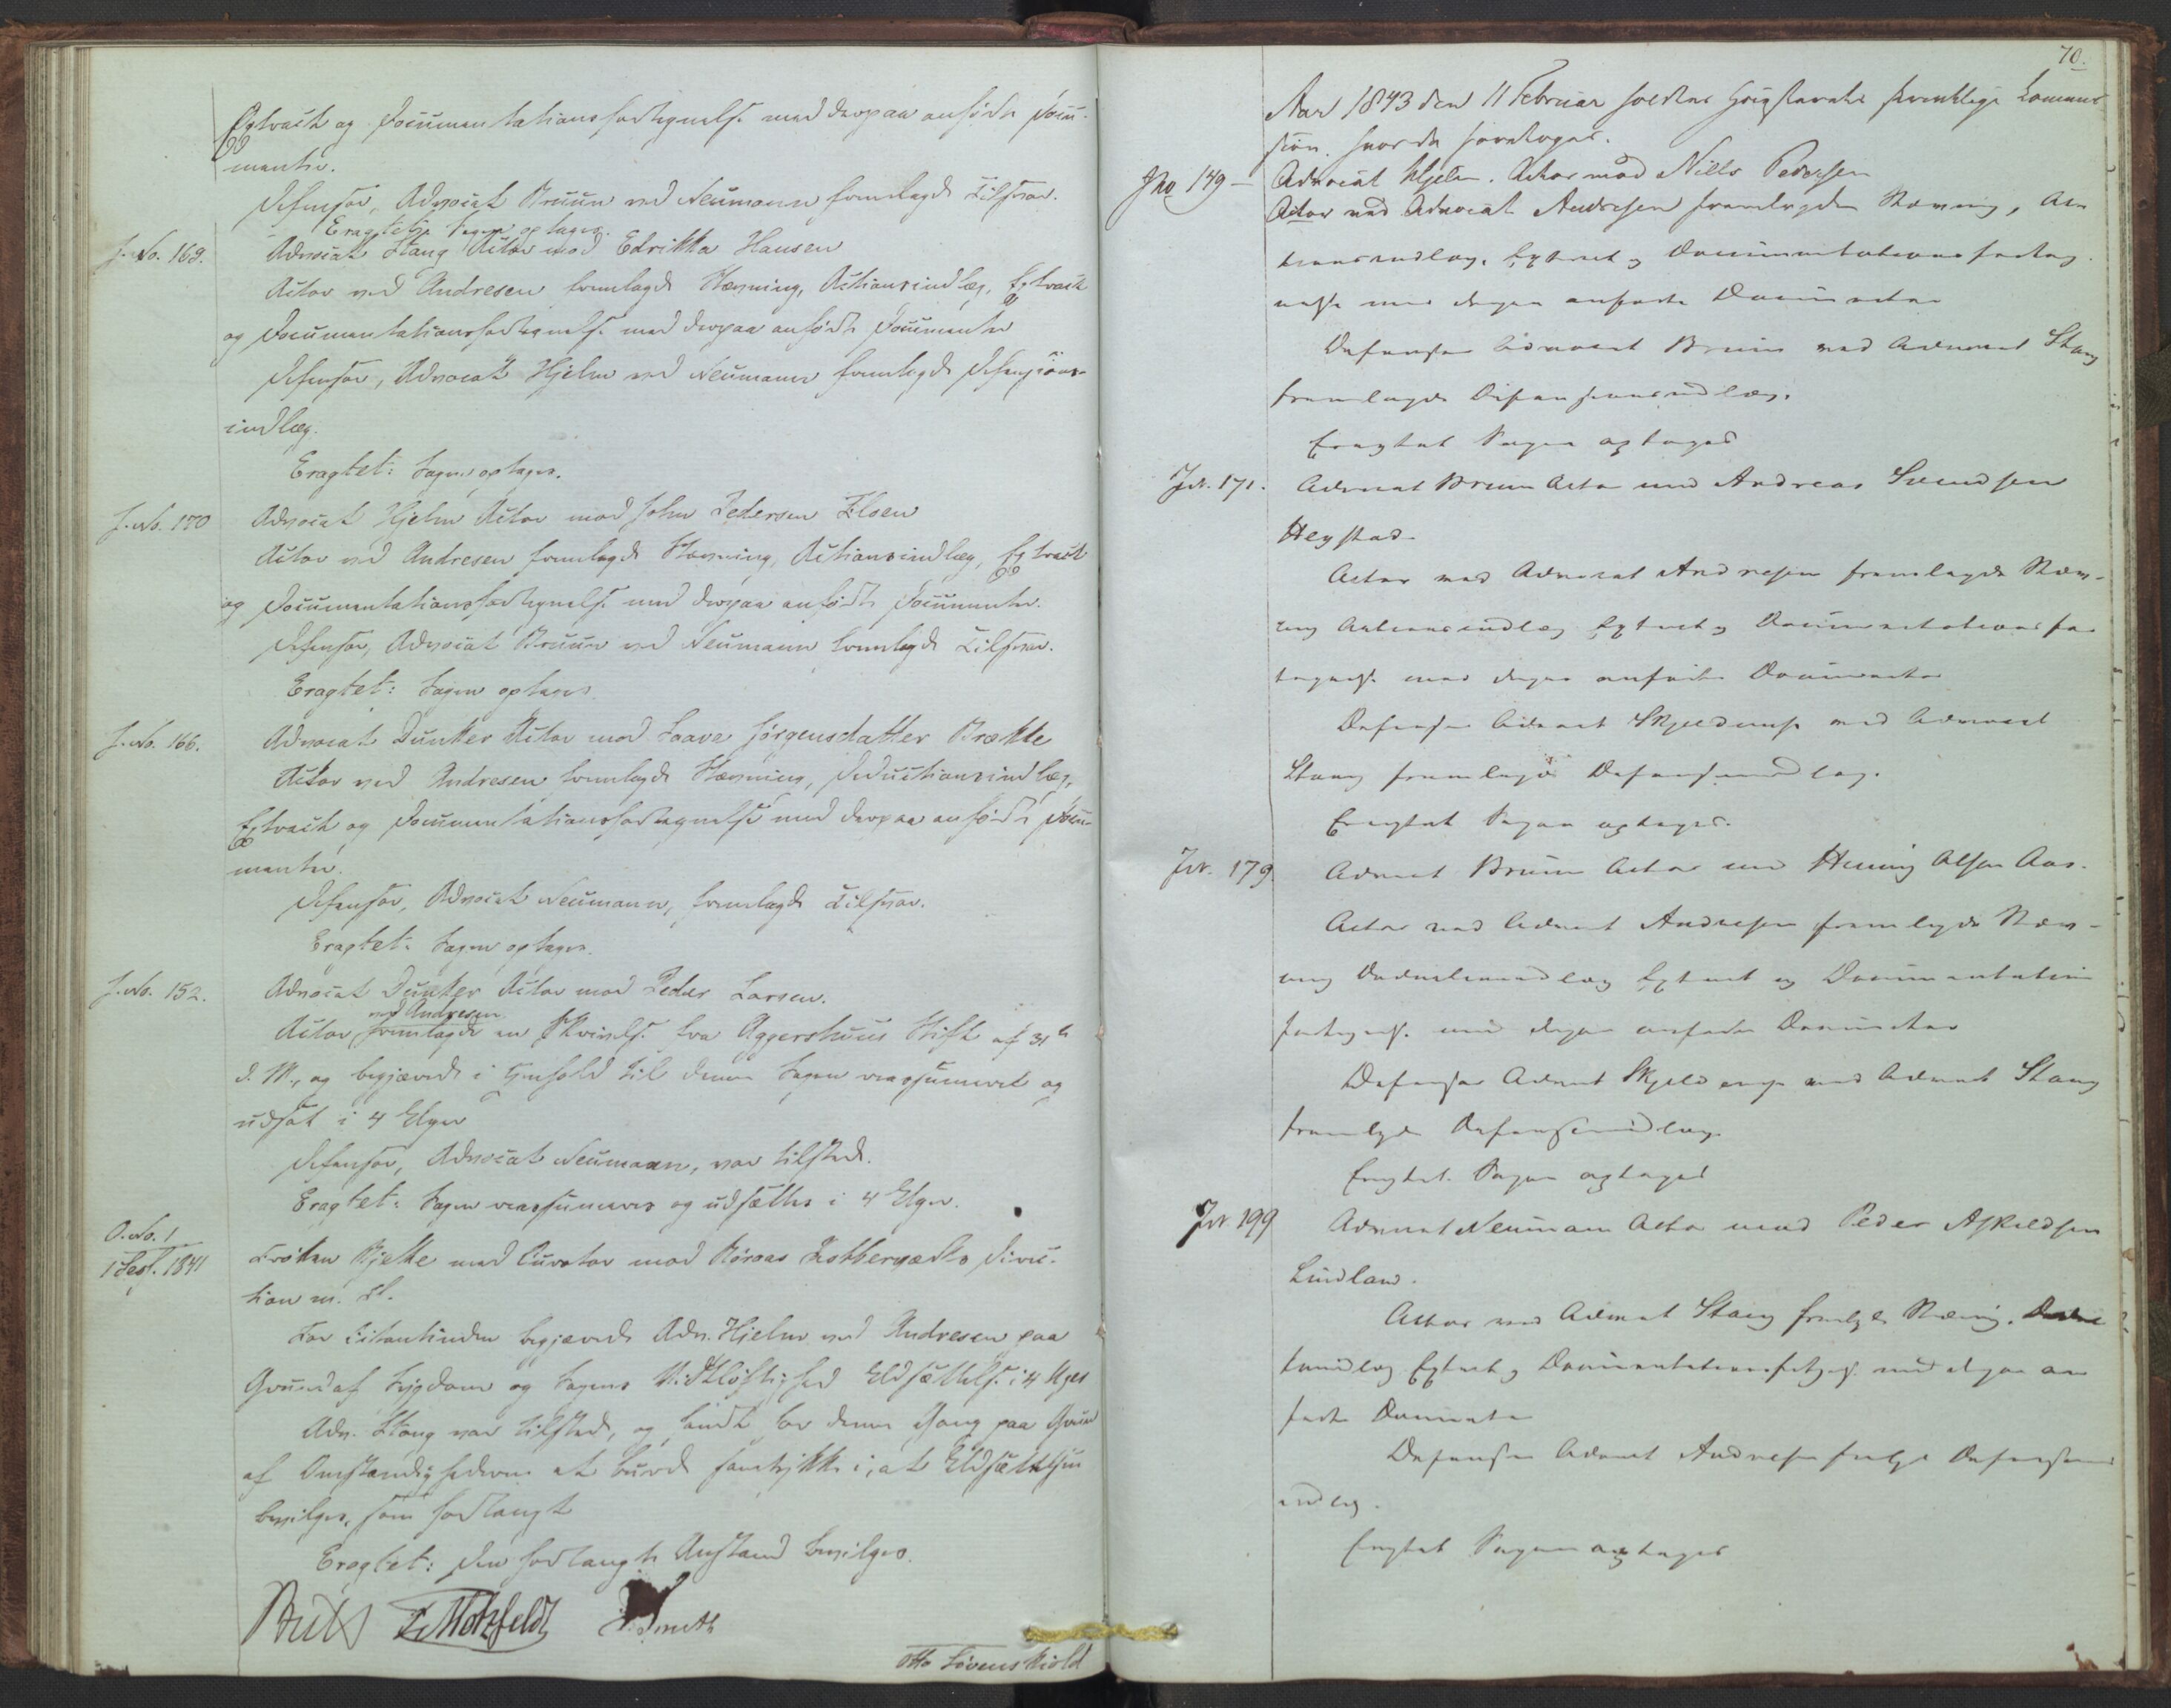 Extract og Documentationsfortegnelse med derpaa anførte Docu-
menter.
Defensor, Advocat Bruun ved Neumann fremlagde Tilsvar.
Eragtet: Sagen optages.
J. No. 169. Advocat Stang Actor mod Edrikka Hansen
Actor ved Andresen fremlagde Stævning, Actionsindlæg, Extract
og Documentationsfortegnelse med derpaa anførte Documenter
Defensor, Advocat Hjelm ved Neumann fremlagde Defensions-
indlæg.
Eragtet: Sagen optages.
J. No. 170 Advocat Hjelm Actor mod John Pedersen Elsen
Actor ved Andresen fremlagde Stævning, Actionsindlæg, Extract
og Documentationsfortegnelse med derpaa anførte Documenter.
Defensor, Advocat Bruun ved Neumann fremlagde Tilsvar.
Eragtet: Sagen optages.
J. No. 166. Advocat Dunker Actor mod Saave Jørgensdatter Brække
Actor ved Andresen fremlagde Stævning, Deductionsindlæg,
Extract og Documentationsfortegnelse med derpaa anførte Docu-
menter.
Defensor, Advocat Neumann, fremlagde Tilsvar.
Eragtet: Sagen optages.
J. No. 152. Advocat Dunker Actor mod Peder Larsen.
ved Andresen
Actor fremlagde en Skrivelse fra Aggershuus Stift af 31te
d. M., og begjærede i Henhold til denne Sagen reassumeret og
udsat i 4 Uger
Defensor, Advocat Neumann, var tilstede.
Eragtet: Sagen reassumeres og udsættes i 4 Uger.
O. No. 1
1 Sept. 1841
Frøken Bjelke med Curator mod Røraas Kobberværks Direc-
tion m. fl.
For Citantinden begjærede Adv. Hjelm ved Andresen paa
Grund af Sygdom og Sagens Vidtløftighed Udsættelse i 4 Uger
Adv. Stang var tilstede, og fandt for denne Gang paa Grund
af Omstændighederne at burde samtykke i, at Udsættelsen
bevilges, som forlangt
Eragtet: Den forlangte Anstand bevilges.
Motzfeldt Smith
Otto Løvenskiold
70.
Aar 1843 den 11 Februar holdtes Høiesterets sædvanlige
hvorda foretoges.
JNo 149 - Advocat Hjelm. Actor mod Niels Pedersen
Actor ved Advocat Andresen fremlagde Stævning, Ac
tionsindlæg, Extract og Documentationsforteg
nelse med derpaa anførte Documenter
Defensor Advocat Bruun ved Advocat Stang
fremlagde Defensionsindlæg.
Eragtet Sagen optages
JN. 171. Advocat Bruun Actor mod Andreas Svendsen
Heystad
Actor ved Advocat Andresen fremlagde Stæv-
ning Actionsindlæg Extract og Documentationsfor
tegnelse med derpaa anførte Documenter
Defensor Advocat Skjelderup ved Advocat
Stang fremlagde Defensionsindlæg.
Eragtet Sagen optages.
JN. 179. Advocat Bruun Actor mod Henning Olsen Aas.
Actor ved Advocat Andresen fremlagde Stæv-
ning Deductionsindlæg Extract og Documentations
fortegnelse med derpaa anførte Documenter
Defensor Advocat Skjelderup ved Advocat Stang
fremlagde Defensionsindlæg
Eragtet. Sagen optages
JN. 199 Advocat Neumann Actor mod Peder Askildsen
Lindland.
Actor ved Advocat Stang fremlagde Stævning, Deduc
tionsindlæg Extract og Documentationsfortegnelse med derpaa an
førte Documenter
Defensor Advocat Andresen fremlagde Defensions
indlæg.
Eragtet Sagen optages